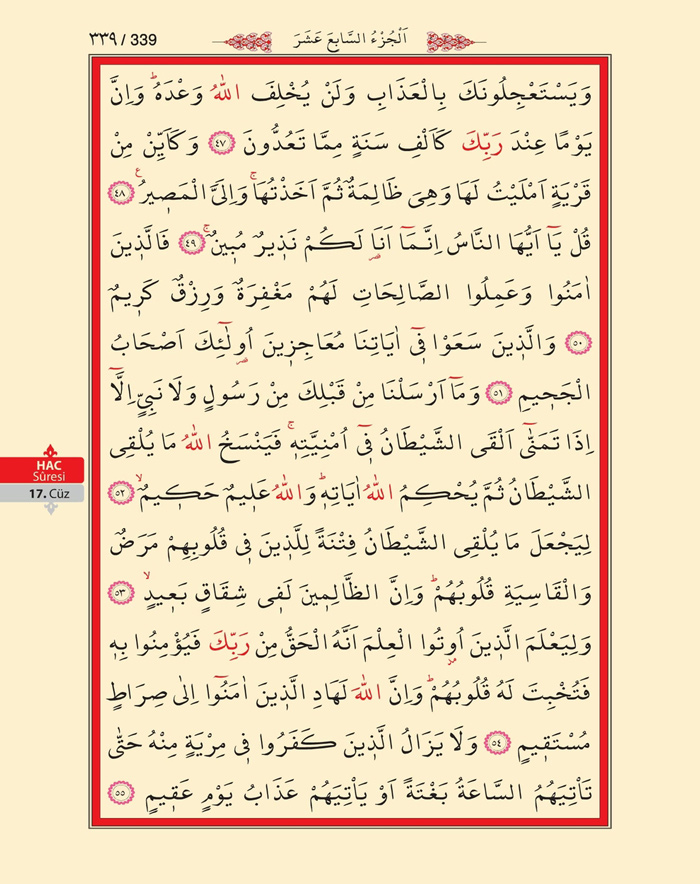 ٣٣٩ / 339
اَلْجُزْءُ السَّابِعَ عَشَرَ
وَيَسْتَعْجِلُونَكَ بِالْعَذَابِ وَلَنْ يُخْلِفَ اللّٰهُ وَعْدَهُۜ وَاِنَّ
يَوْمًا عِنْدَ رَبِّكَ كَاَلْفِ سَنَةٍ مِمَّا تَعُدُّونَ ﴿٤٧﴾ وَكَاَيِّنْ مِنْ
قَرْيَةٍ اَمْلَيْتُ لَهَا وَهِيَ ظَالِمَةٌ ثُمَّ اَخَذْتُهَاۚ وَاِلَيَّ الْمَص۪يرُ۟ ﴿٤٨﴾
قُلْ يَٓا اَيُّهَا النَّاسُ اِنَّمَٓا اَنَا۬ لَكُمْ نَذ۪يرٌ مُب۪ينٌۚ ﴿٤٩﴾ فَالَّذ۪ينَ
اٰمَنُوا وَعَمِلُوا الصَّالِحَاتِ لَهُمْ مَغْفِرَةٌ وَرِزْقٌ كَر۪يمٌ
﴿٥٠﴾ وَالَّذ۪ينَ سَعَوْا ف۪ٓي اٰيَاتِنَا مُعَاجِز۪ينَ اُو۬لٰٓئِكَ اَصْحَابُ
الْجَح۪يمِ ﴿٥١﴾ وَمَٓا اَرْسَلْنَا مِنْ قَبْلِكَ مِنْ رَسُولٍ وَلَا نَبِيٍّ اِلَّٓا
اِذَا تَمَنّٰٓى اَلْقَى الشَّيْطَانُ ف۪ٓي اُمْنِيَّتِه۪ۚ فَيَنْسَخُ اللّٰهُ مَا يُلْقِي
الشَّيْطَانُ ثُمَّ يُحْكِمُ اللّٰهُ اٰيَاتِه۪ۜ وَاللّٰهُ عَل۪يمٌ حَك۪يمٌۙ ﴿٥٢﴾
لِيَجْعَلَ مَا يُلْقِي الشَّيْطَانُ فِتْنَةً لِلَّذ۪ينَ ف۪ي قُلُوبِهِمْ مَرَضٌ
وَالْقَاسِيَةِ قُلُوبُهُمْۜ وَاِنَّ الظَّالِم۪ينَ لَف۪ي شِقَاقٍ بَع۪يدٍۙ ﴿٥٣﴾
وَلِيَعْلَمَ الَّذ۪ينَ اُو۫تُوا الْعِلْمَ اَنَّهُ الْحَقُّ مِنْ رَبِّكَ فَيُؤْمِنُوا بِه۪
فَتُخْبِتَ لَهُ قُلُوبُهُمْۜ وَاِنَّ اللّٰهَ لَهَادِ الَّذ۪ينَ اٰمَنُٓوا اِلٰى صِرَاطٍ
مُسْتَق۪يمٍ ﴿٥٤﴾ وَلَا يَزَالُ الَّذ۪ينَ كَفَرُوا ف۪ي مِرْيَةٍ مِنْهُ حَتّٰى
تَأْتِيَهُمُ السَّاعَةُ بَغْتَةً اَوْ يَأْتِيَهُمْ عَذَابُ يَوْمٍ عَق۪يمٍ ﴿٥٥﴾
HAC
Sûresi
17. Cüz